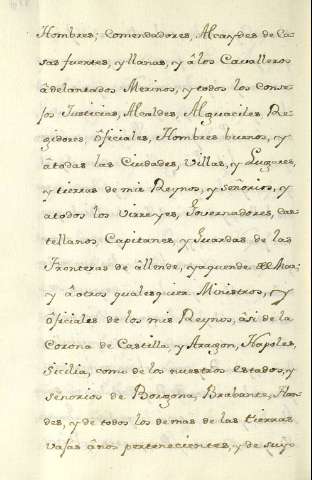 Hombres; Comendadores, Alcaydes de Ca-
sas fuertes, y llanas, y â los Cavalleros
âdelantados Merinos, y todos los Conse-
jos Justicias, Alcaldes, Alguaciles, Re-
gidores, ôficiales, Hombres buenos, y
âtodas las Ciudades, Villas, y Lugares,
y tierras de mis Reynos, y señorios, y
atodos los Virreyes, Governadores, Cas-
tellanos, Capitanes y Guardas de las
Fronteras de âllende, yaquende el Mar;
y â otros qualesquier Ministros, y
ôficiales de los mis Reynos, âsi de la
Corona de Castilla, y Aragon, Napoles,
Sicilia, como de los nuestros Estados, y
señorios de Borgoña, Brabante, Flan-
des, y de todos los demas de las tierras
vajas ânos pertenecientes, y de suyo